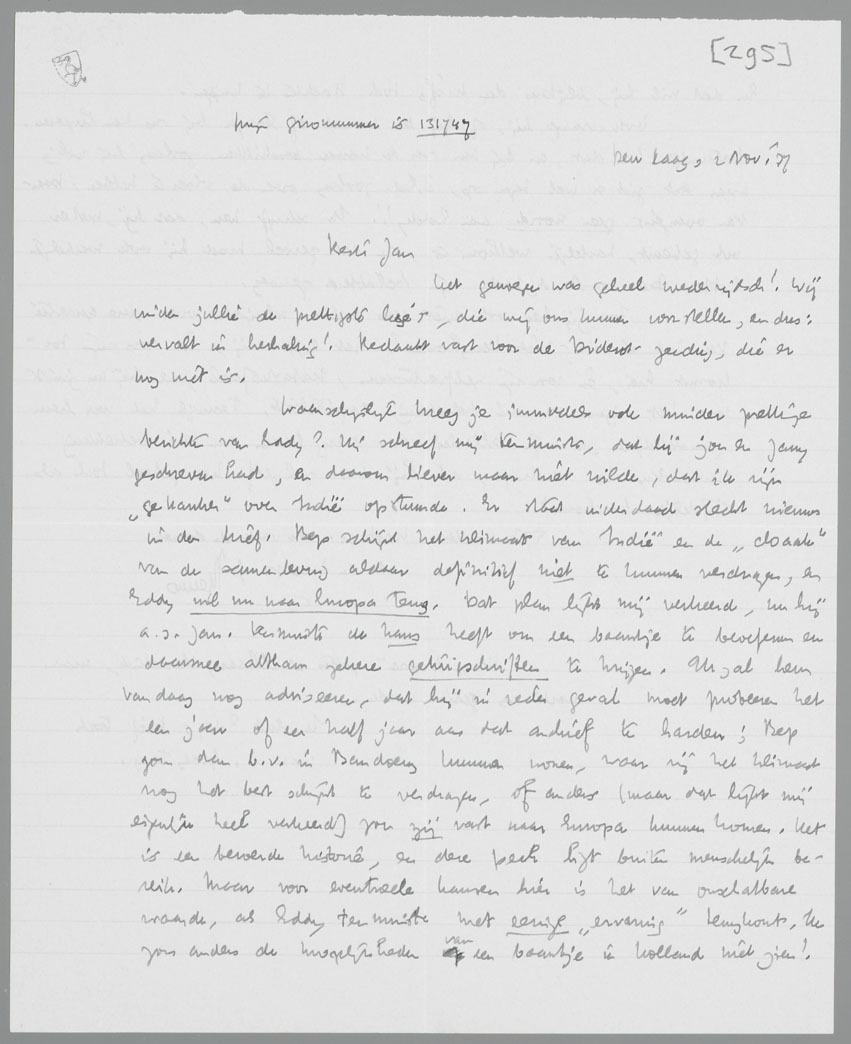 [295]
Mijn gironummer is 131747
Den Haag, 2 Nov. '37
Beste Jan
Het genoegen was geheel wederzijdsch! Wij
vinden jullie de prettigste logé's, die wij ons kunnen voorstellen, en dus:
vervalt in herhaling! Bedankt vast voor de zending, die er
nog niet is.
Waarschijnlijk kreeg je inmiddels ook minder prettige
berichten van Eddy? Hij schreef mij tenminste, dat hij jou en Jany
geschreven had, en daarom liever maar niet wilde, dat ik zijn
"gekanker" over Indië opstuurde. Er staat inderdaad slecht nieuws
in den brief. Bep schijnt het klimaat van Indië en de "cloaak"
van de samenleving aldaar definitief niet te kunnen verdragen, en
Eddy wil nu naar Europa terug. Dat plan lijkt mij verkeerd, nu hij
a.s. Jan. tenminste de kans heeft om een baantje te bevechten en
daarmee althans zekere getuigschriften te krijgen. Ik zal hem
vandaag nog adviseeren, dat hij in ieder geval moet probeeren het
een jaar of een half jaar aan dat archief te harden; Bep
zou dan b.v. in Bandoeng kunnen wonen, waar zij het klimaat
nog het best schijnt te verdragen, of anders (maar dat lijkt mij
eigenlijk heel verkeerd) zou zij vast naar Europa kunnen komen. Het
is een beroerde historie, en deze pech ligt buiten menschelijk be-
reik. Maar voor eventueele kansen hier is het van onschatbare
waarde, als Eddy tenminste met eenige "ervaring" terugkomt. Ik
zou anders de mogelijkheden van een baantje in Holland niet zien!